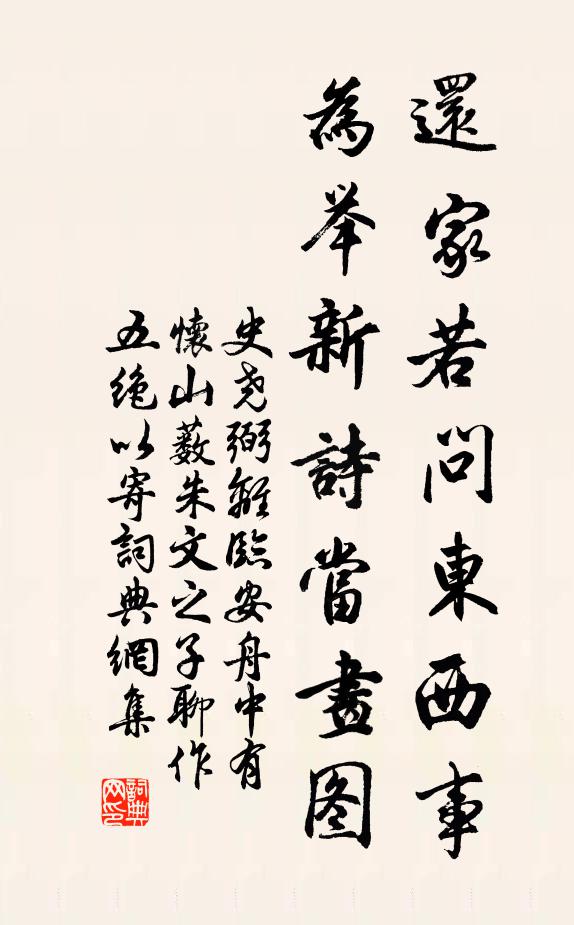 還家若問東西事
為举新詩當畫图
史尧弼離臨安舟中有
懷山藪朱文之子聊作
五绝以寄詞典網集
詞典
网印